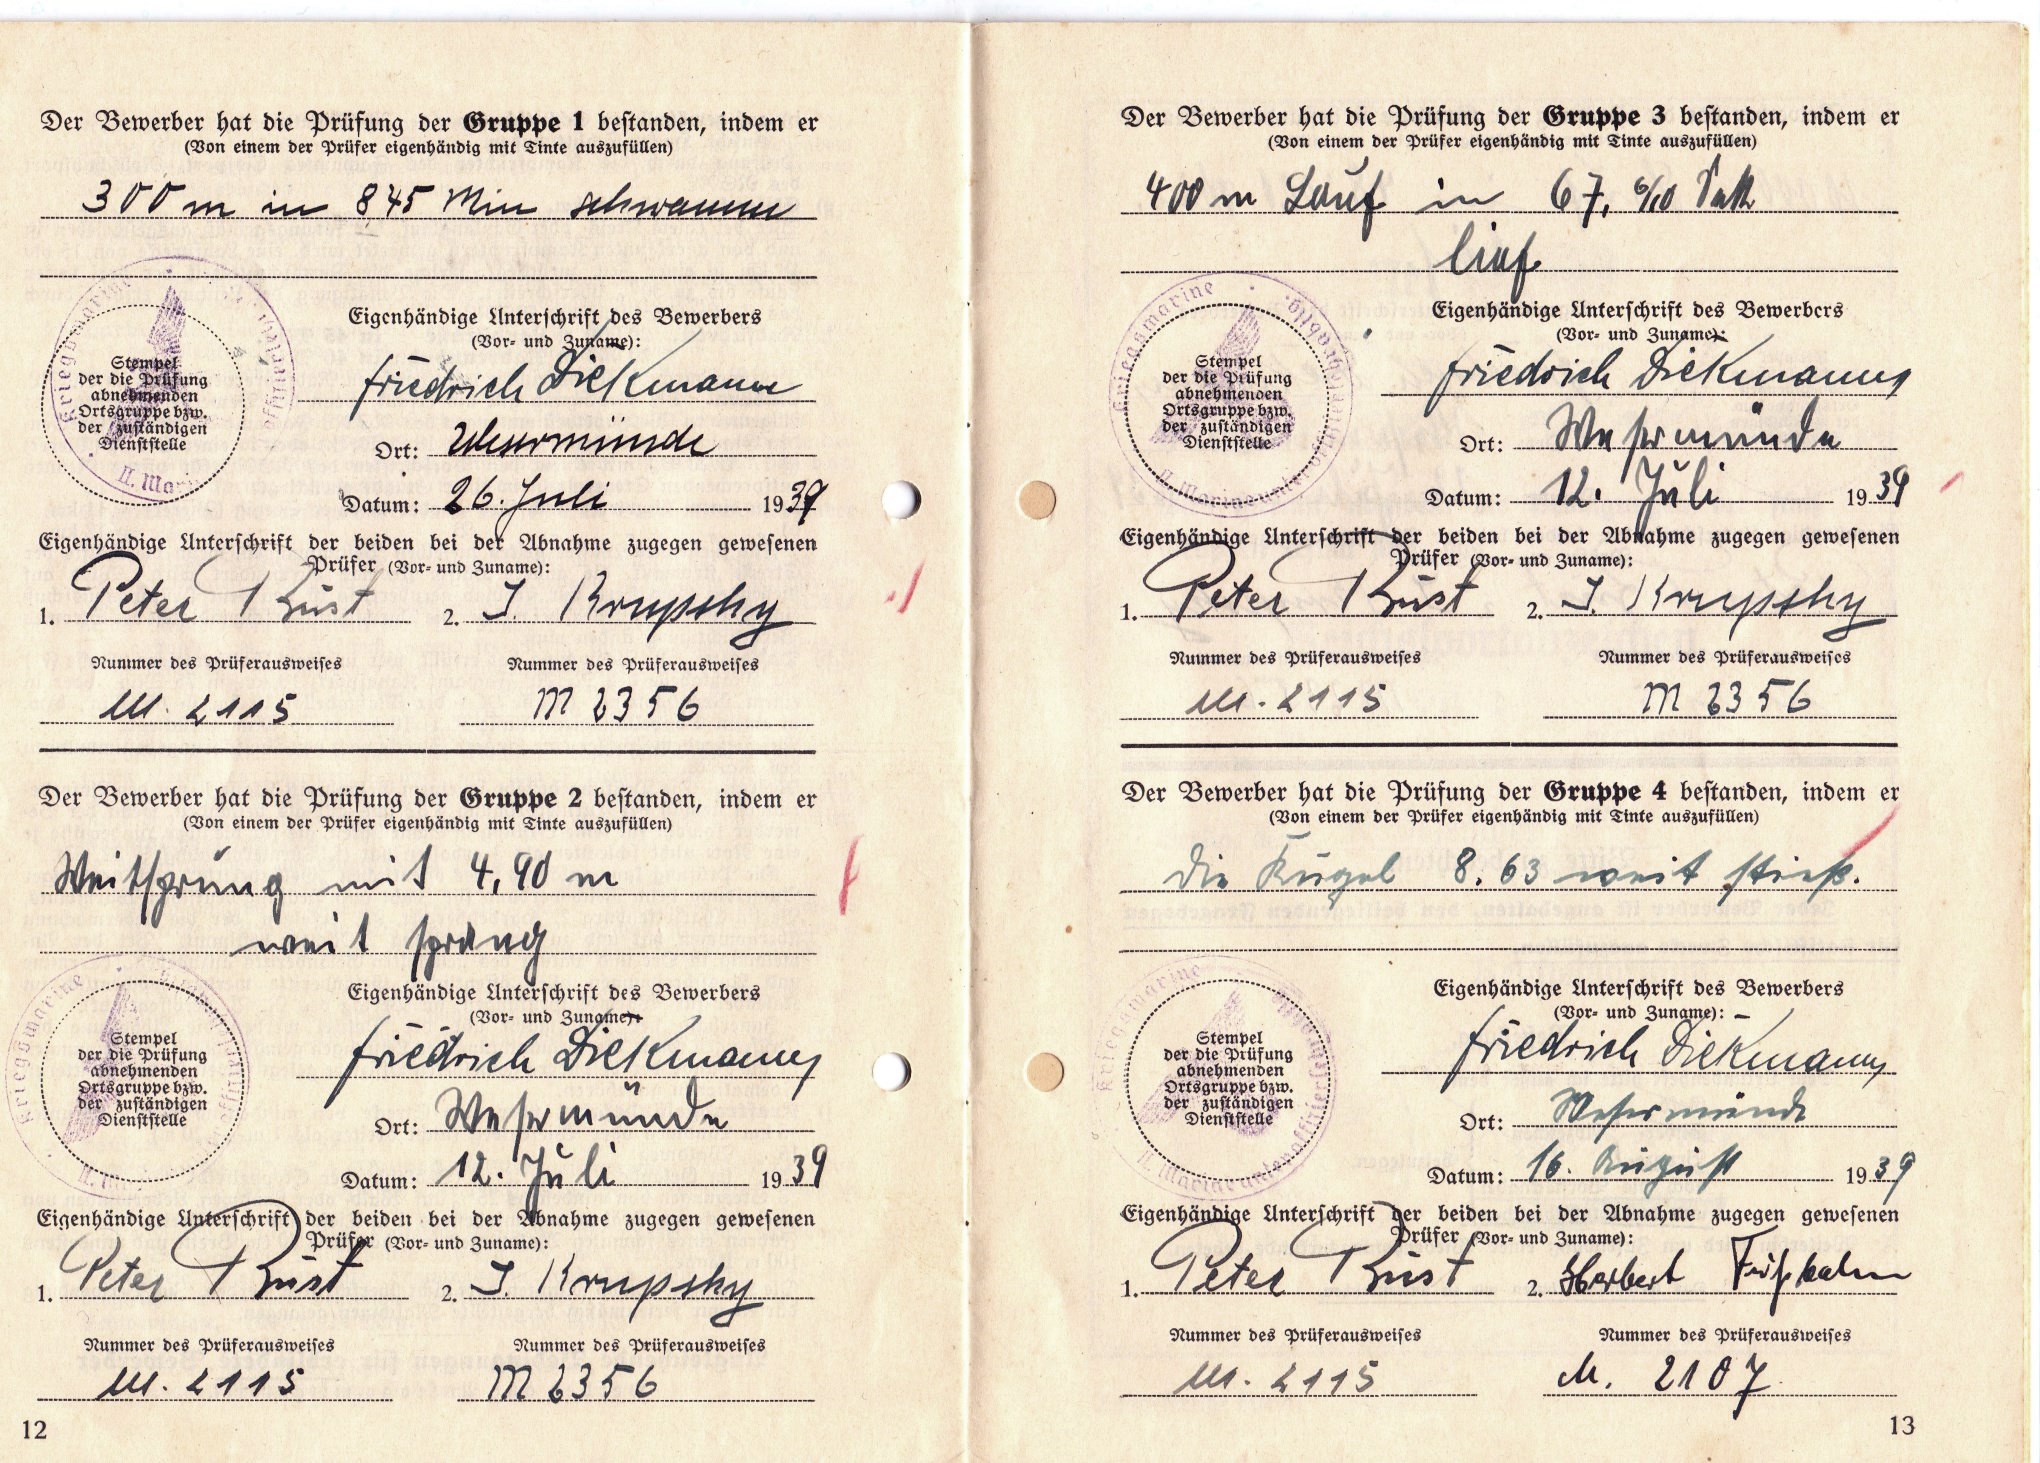 Der Bewerber hat die Prüfung der Gruppe 1 bestanden, indem er
(Von einem der Prüfer eigenhändig mit Tinte auszufüllen)
300 m in 8 45 Min schwamm
Kriegsmarine
II. Mar
Stempel
der die Prüfung
abnehmenden
Ortsgruppe bzw.
der zuständigen
Dienststelle
Eigenhändige Unterschrift des Bewerbers
(Vor- und Zuname):
Friedrich Diekmann
Ort: Wesermünde
Datum: 26. Juli 1939
Eigenhändige Unterschrift der beiden bei der Abnahme zugegen gewesenen
Prüfer (Vor- und Zuname):
1. Peter Rüst 2. J. Krupsky
Nummer des Prüferausweises Nummer des Prüferausweises
M. 2115 M 2356
Der Bewerber hat die Prüfung der Gruppe 2 bestanden, indem er
(Von einem der Prüfer eigenhändig mit Tinte auszufüllen)
Weitsprung mit 4,90 m
weit sprang
Kriegsmarine
Stempel
der die Prüfung
abnehmenden
Ortsgruppe bzw.
der zuständigen
Dienststelle
Eigenhändige Unterschrift des Bewerbers
(Vor- und Zuname):
Friedrich Diekmann
Ort: Wesermünde
Datum: 12. Juli 1939
Eigenhändige Unterschrift der beiden bei der Abnahme zugegen gewesenen
Prüfer (Vor- und Zuname):
1. Peter Rüst 2. J. Krupsky
Nummer des Prüferausweises Nummer des Prüferausweises
M. 2115 M 2356
12
Der Bewerber hat die Prüfung der Gruppe 3 bestanden, indem er
(Von einem der Prüfer eigenhändig mit Tinte auszufüllen)
400 m Lauf in 67, 6/10 Sek
lief
Kriegsmarine
II. Marineunteroffizier
Stempel
der die Prüfung
abnehmenden
Ortsgruppe bzw.
der zuständigen
Dienststelle
Eigenhändige Unterschrift des Bewerbers
(Vor- und Zuname):
Friedrich Diekmann
Ort: Wesermünde
Datum: 12. Juli 1939
Eigenhändige Unterschrift der beiden bei der Abnahme zugegen gewesenen
Prüfer (Vor- und Zuname):
1. Peter Rüst 2. J. Krupsky
Nummer des Prüferausweises Nummer des Prüferausweises
M. 2115 M 2356
Der Bewerber hat die Prüfung der Gruppe 4 bestanden, indem er
(Von einem der Prüfer eigenhändig mit Tinte auszufüllen)
die Kugel 8.63 weit stieß.
Kriegsmarine
II. Marineunteroffizier
Stempel
der die Prüfung
abnehmenden
Ortsgruppe bzw.
der zuständigen
Dienststelle
Eigenhändige Unterschrift des Bewerbers
(Vor- und Zuname):
Friedrich Diekmann
Ort: Wesermünde
Datum: 16. August 1939
Eigenhändige Unterschrift der beiden bei der Abnahme zugegen gewesenen
Prüfer (Vor- und Zuname):
1. Peter Rüst 2. Herbert
Nummer des Prüferausweises Nummer des Prüferausweises
M. 2115 M. 2107
13